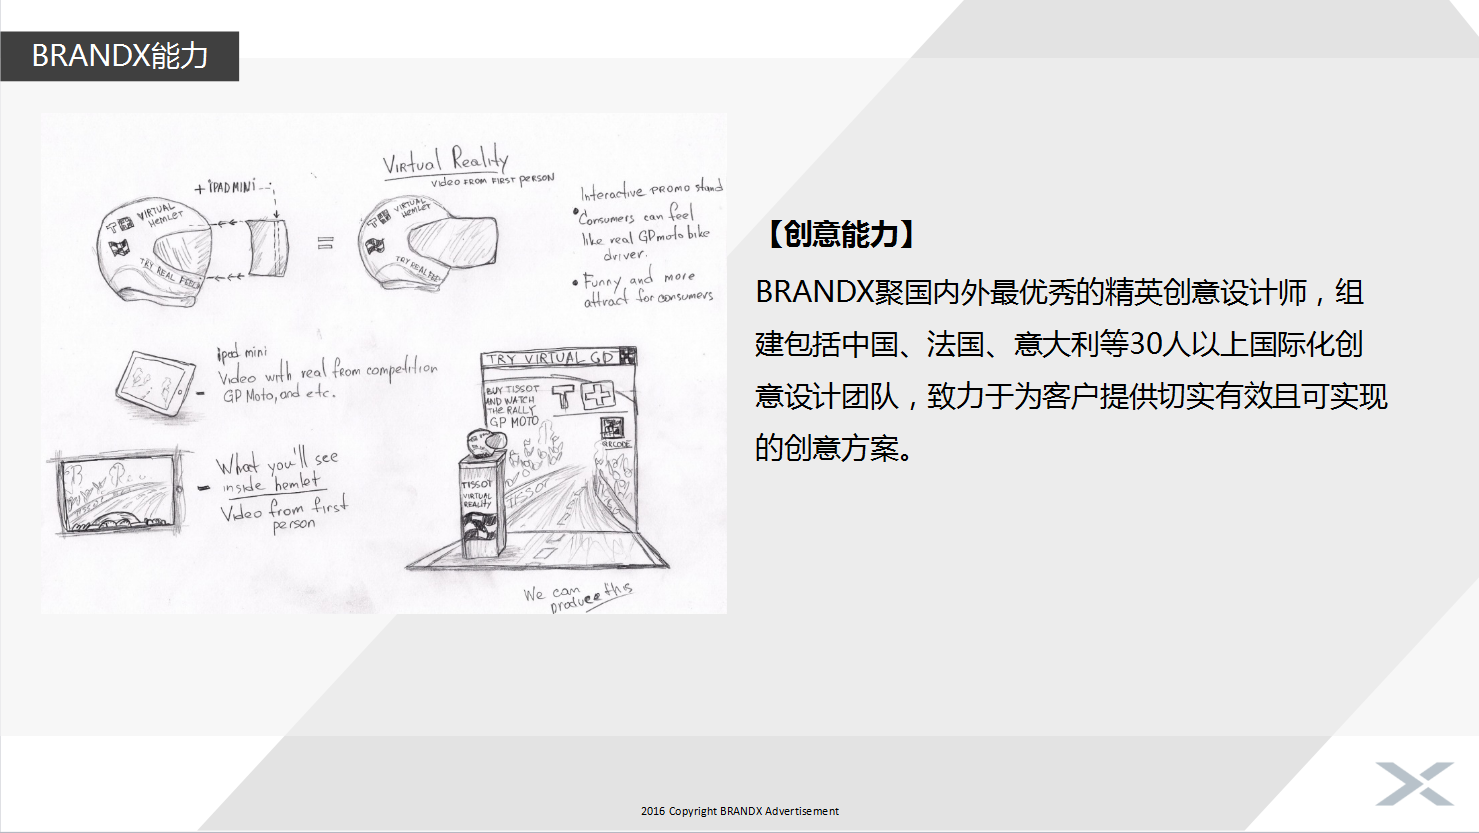 BRANDX能力
Virtual Reality
Video from first person
+ iPAD MINI
VIRTUAL
HEMLET
TRY REAL FEELI
=
VIRTUAL
HEMLET
TRY REAL FEEL
Interactive promo stand
• Consumers can feel
like real GP moto bike
driver.
• Funny and more
attract for consumers
ipad mini
Video with real from competition
GP Moto, and etc.
What you'll see
inside hemlet
Video from first
person
TRY VIRTUAL GP
BUY TISSOT
AND WATCH
THE RALLY
GP MOTO
T
QRCODE
TISSOT
TISSOT
VIRTUAL
REALITY
We can
produce this
【创意能力】
BRANDX聚国内外最优秀的精英创意设计师，组
建包括中国、法国、意大利等30人以上国际化创
意设计团队，致力于为客户提供切实有效且可实现
的创意方案。
2016 Copyright BRANDX Advertisement